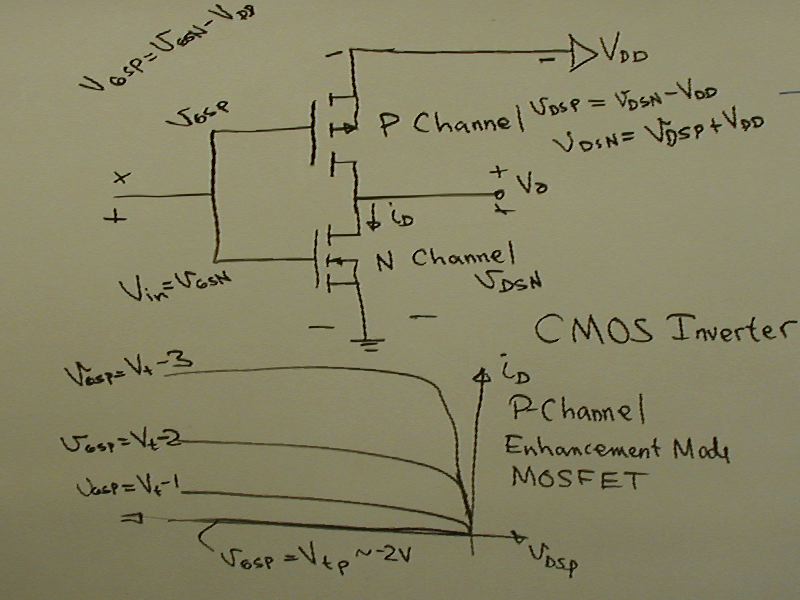 VGSP=VGSN-VDD
VDD
VGSP
P Channel
VDSP = VDSN-VDD
VDSN= VDSP+VDD
+
Vo
iD
N Channel
VDSN
Vin=VGSN
CMOS Inverter
VGSP=Vt-3
iD
P-Channel
Enhancement Mode
MOSFET
VGSP=Vt-2
VGSP=Vt-1
VGSP=Vtp~-2V
VDSP